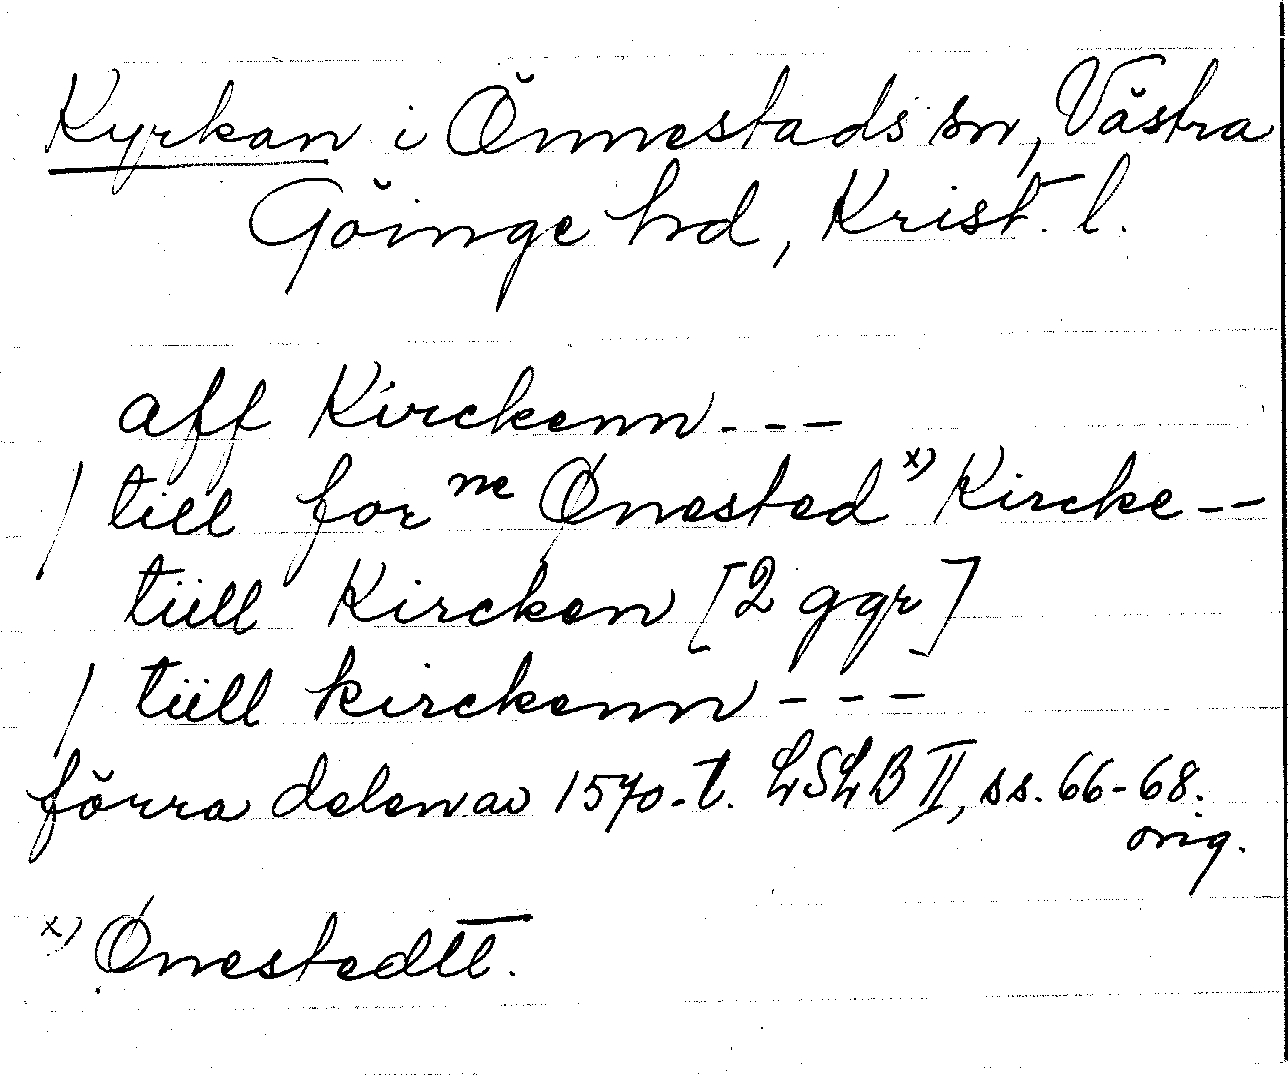 Kyrkan i Önnestads sn, Västra
Göinge hd, Krist. l.
aff Kirckenn - - -
/ till for ne Ønested x) Kircke - -
tiill Kircken [2 ggr]
/ tiill kirckenn - - -
förra delen av 1570-t. LSLB II, ss. 66-68.
orig.
x) Ønestedtt.